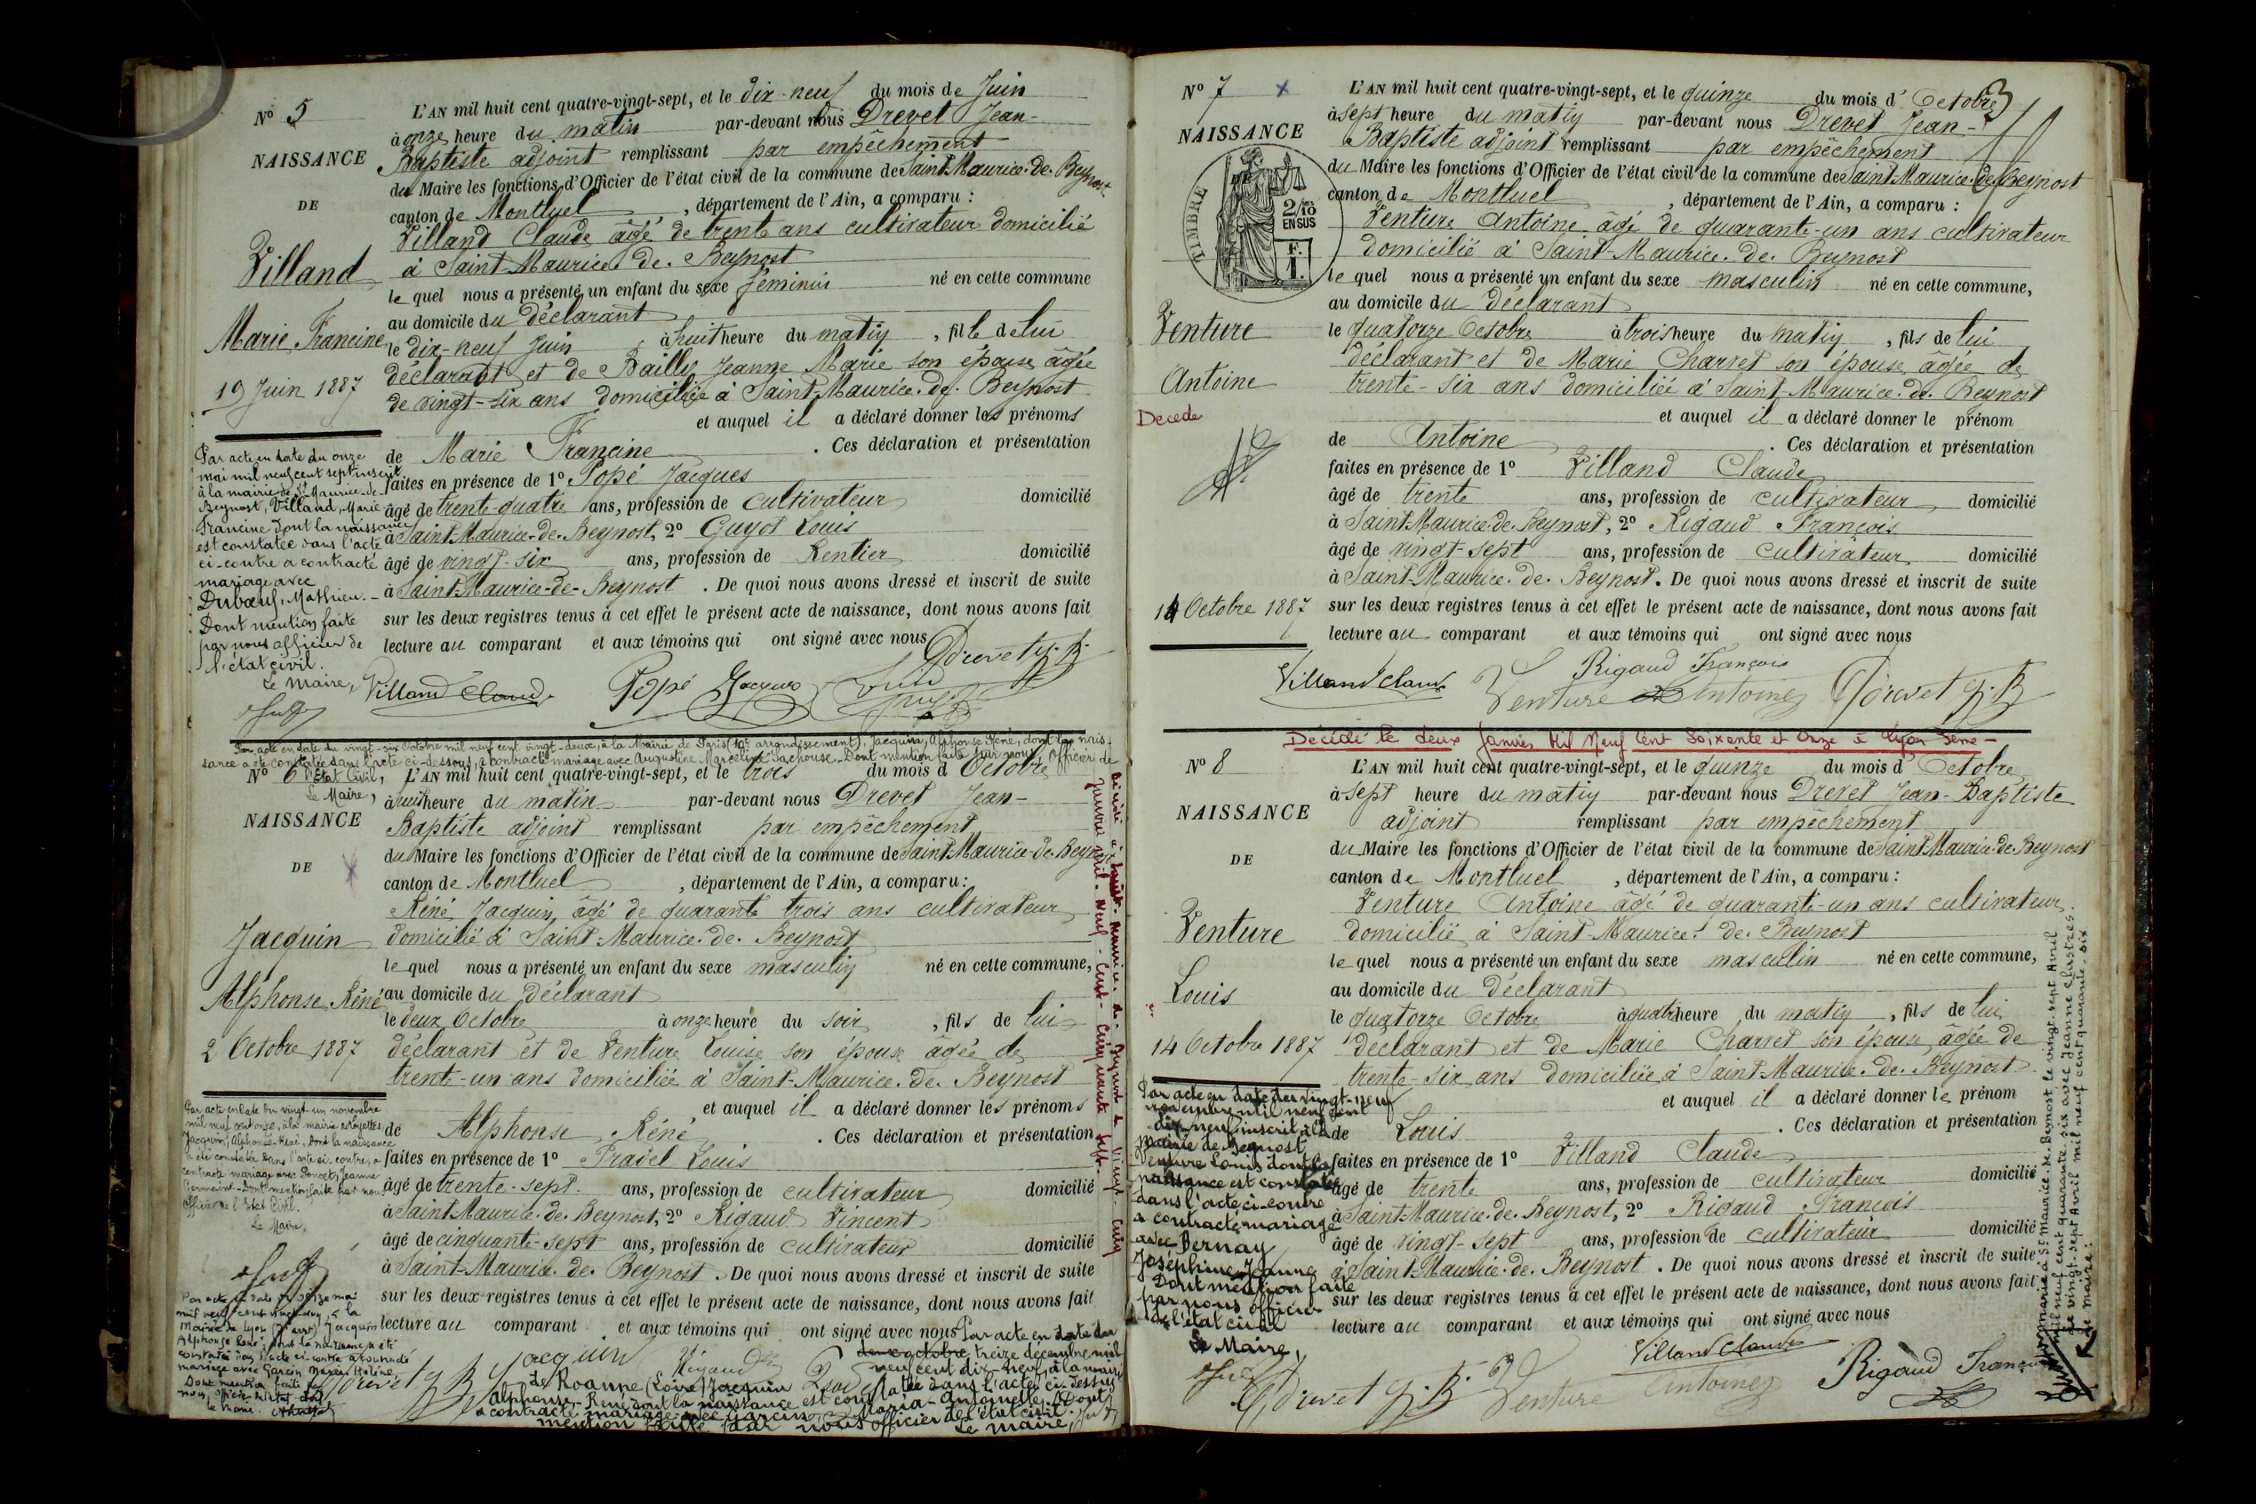 Nº 5
NAISSANCE
DE
Villand
Marie Francine
19 Juin 1887
Par acte en date du onze
mai mil neuf cent sept inscrit
à la mairie de St Maurice-de-
Beynost, Villand, Marie
Francine dont la naissance
est constatée dans l'acte
ci-contre a contracté
mariage avec
Duboeuf, Mathieu.
Dont mention faite
par nous officier de
l'état civil.
Le Maire,
L'AN mil huit cent quatre-vingt-sept, et le dix-neuf du mois de Juin
à onze heure du matin par-devant nous Drevet Jean-
Baptiste adjoint remplissant par empêchement
du Maire les fonctions d'Officier de l'état civil de la commune de Saint Maurice-de-Beynost
canton de Montluel, département de l'Ain, a comparu :
Villand Claude âgé de trente ans cultivateur domicilié
à Saint Maurice de Beynost
le quel nous a présenté un enfant du sexe féminin né en cette commune
au domicile du déclarant
le dix-neuf Juin à huit heure du matin, fille de lui
déclarant et de Bailly Jeanne Marie son épouse âgée
de vingt-six ans domiciliée à Saint Maurice de Beynost
et auquel il a déclaré donner les prénoms
de Marie Francine. Ces déclaration et présentation
faites en présence de 1º Popé Jacques
âgé de trente-quatre ans, profession de cultivateur domicilié
à Saint-Maurice-de-Beynost, 2º Guyot Louis
âgé de vingt-six ans, profession de Rentier domicilié
à Saint-Maurice-de-Beynost. De quoi nous avons dressé et inscrit de suite
sur les deux registres tenus à cet effet le présent acte de naissance, dont nous avons fait
lecture au comparant et aux témoins qui ont signé avec nous
Drevet J. B.
Villand Claude Popé Jacques
Par acte en date du vingt-six Octobre mil neuf cent vingt-deux, à la Mairie de Paris (19e arrondissement), Jacquin, Alphonse Réné, dont la nais-
sance a été constatée dans l'acte ci-dessous, a contracté mariage avec Augustine Marceline Dachouse. Dont mention faite par nous, Officier de
l'Etat Civil,
Le Maire,
Nº 6
NAISSANCE
DE
Jacquin
Alphonse Réné
2 Octobre 1887
Par acte en date du vingt-un novembre
mil neuf cent onze, à la mairie de
Jacquin, Alphonse-René, dont la naissance
a été constatée dans l'acte ci-contre, a
contracté mariage avec Poncet, Jeanne
Dont mention faite par nous
Officier de l'Etat Civil.
Le Maire,
L'AN mil huit cent quatre-vingt-sept, et le trois du mois d'Octobre
à huit heure du matin par-devant nous Drevet Jean-
Baptiste adjoint remplissant par empêchement
du Maire les fonctions d'Officier de l'état civil de la commune de Saint Maurice-de-Beynost
canton de Montluel, département de l'Ain, a comparu :
Réné Jacquin âgé de quarante trois ans cultivateur
domicilié à Saint-Maurice-de-Beynost
le quel nous a présenté un enfant du sexe masculin né en cette commune,
au domicile du déclarant
le deux Octobre à onze heure du soir, fils de lui
déclarant et de Venture Louise son épouse âgée de
trente-un ans domiciliée à Saint-Maurice-de-Beynost
et auquel il a déclaré donner les prénoms
de Alphonse Réné. Ces déclaration et présentation
faites en présence de 1º Pradel Louis
âgé de trente-sept ans, profession de cultivateur domicilié
à Saint Maurice-de-Beynost, 2º Rigaud Vincent
âgé de cinquante-sept ans, profession de cultivateur domicilié
à Saint-Maurice-de-Beynost. De quoi nous avons dressé et inscrit de suite
sur les deux registres tenus à cet effet le présent acte de naissance, dont nous avons fait
lecture au comparant et aux témoins qui ont signé avec nous
Drevet J B Jacquin Rigaud
Par acte en date du
deux octobre treize décembre mil
neuf cent dix-neuf, à la mairie
de Roanne (Loire) Jacquin
Alphonse-René dont la naissance est constatée dans l'acte ci-dessus
a contracté mariage avec Garcin, Maria-Antoinette. Dont
mention faite par nous officier de l'état civil.
Le Maire,
Décédé à Saint-Maurice-de-Beynost le vingt-cinq
Janvier Mil-Neuf-Cent-Cinquante sept.
Nº 7
NAISSANCE
TIMBRE
2/10
EN SUS
F.
1.
Venture
Antoine
Decede
14 Octobre 1887
3
L'AN mil huit cent quatre-vingt-sept, et le quinze du mois d'Octobre
à sept heure du matin par-devant nous Drevet Jean-
Baptiste adjoint remplissant par empêchement
du Maire les fonctions d'Officier de l'état civil de la commune de Saint Maurice-de-Beynost
canton de Montluel, département de l'Ain, a comparu :
Venture Antoine âgé de quarante-un ans cultivateur
domicilié à Saint-Maurice-de-Beynost
le quel nous a présenté un enfant du sexe masculin né en cette commune,
au domicile du déclarant
le quatorze Octobre à trois heure du matin, fils de lui
déclarant et de Marie Charret son épouse âgée de
trente-six ans domiciliée à Saint Maurice-de-Beynost
et auquel il a déclaré donner le prénom
de Antoine. Ces déclaration et présentation
faites en présence de 1º Villand Claude
âgé de trente ans, profession de cultivateur domicilié
à Saint Maurice-de-Beynost, 2º Rigaud François
âgé de vingt-sept ans, profession de cultivateur domicilié
à Saint-Maurice-de-Beynost. De quoi nous avons dressé et inscrit de suite
sur les deux registres tenus à cet effet le présent acte de naissance, dont nous avons fait
lecture au comparant et aux témoins qui ont signé avec nous
Rigaud François
Villand Claude Venture Antoine Drevet J. B
Décédé le deux Janvier Mil Neuf Cent Soixante et Onze à Lyon 3ème
Nº 8
NAISSANCE
DE
Venture
Louis
14 Octobre 1887
Par acte en date du vingt-neuf
novembre mil neuf cent
dix-neuf inscrit à la
mairie de Beynost,
Venture Louis dont la
naissance est constatée
dans l'acte ci-contre
a contracté mariage
avec Bernay
Joséphine Jeanne
Dont mention faite
par nous officier
de l'état civil
Le Maire,
L'AN mil huit cent quatre-vingt-sept, et le quinze du mois d'Octobre
à sept heure du matin par-devant nous Drevet Jean-Baptiste
adjoint remplissant par empêchement
du Maire les fonctions d'Officier de l'état civil de la commune de Saint Maurice-de-Beynost
canton de Montluel, département de l'Ain, a comparu :
Venture Antoine âgé de quarante-un ans cultivateur
domicilié à Saint-Maurice-de-Beynost
le quel nous a présenté un enfant du sexe masculin né en cette commune,
au domicile du déclarant
le quatorze Octobre à quatre heure du matin, fils de lui
déclarant et de Marie Charret son épouse âgée de
trente-six ans domiciliée à Saint Maurice-de-Beynost
et auquel il a déclaré donner le prénom
de Louis. Ces déclaration et présentation
faites en présence de 1º Villand Claude
âgé de trente ans, profession de cultivateur domicilié
à Saint Maurice-de-Beynost, 2º Rigaud François
âgé de vingt-sept ans, profession de cultivateur domicilié
à Saint-Maurice-de-Beynost. De quoi nous avons dressé et inscrit de suite
sur les deux registres tenus à cet effet le présent acte de naissance, dont nous avons fait
lecture au comparant et aux témoins qui ont signé avec nous
Villand Claude
Drevet J. B. Venture Antoine Rigaud François
marié à St Maurice-de-Beynost le vingt-sept Avril
mil neuf cent quarante-six avec Jeanne Chastres.
Le vingt-sept Avril mil neuf cent quarante-six
Le Maire: